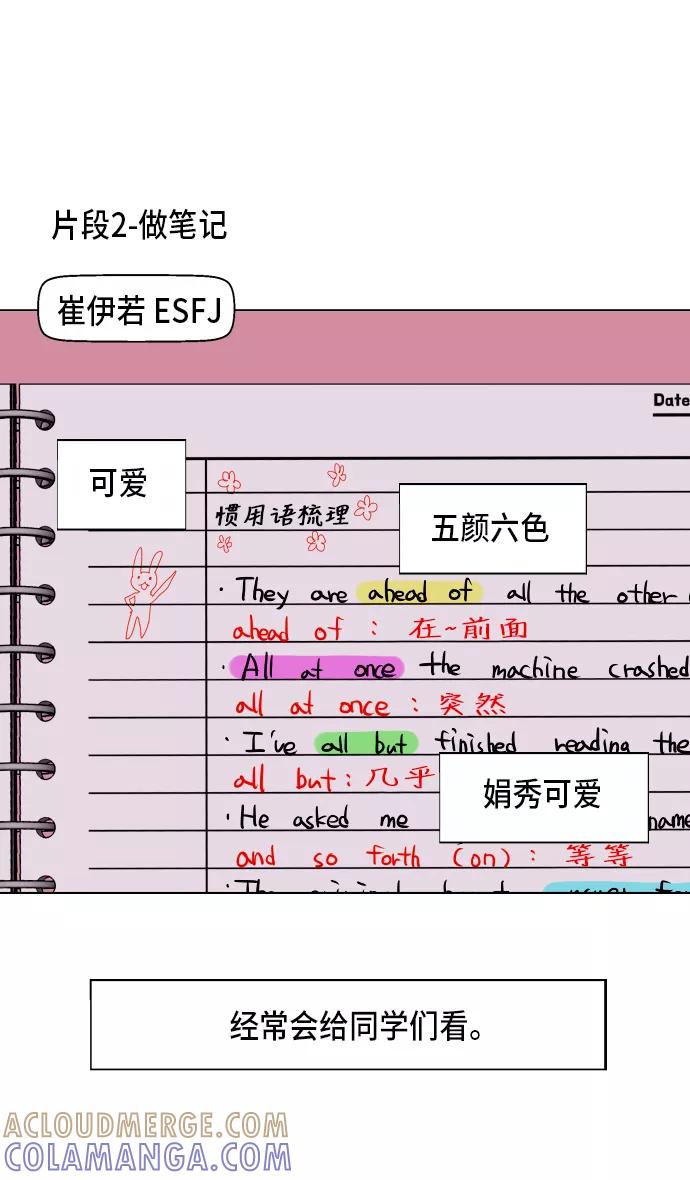 片段2-做笔记
崔伊若 ESFJ
Date
可爱
惯用语梳理
五颜六色
· They are ahead of all the other
ahead of : 在~前面
· All at once the machine crashed
all at once : 突然
· I've all but finished reading the
all but : 几乎
娟秀可爱
· He asked me name
and so forth (on) : 等等
经常会给同学们看。
ACLOUDMERGE.COM
COLAMANGA.COM